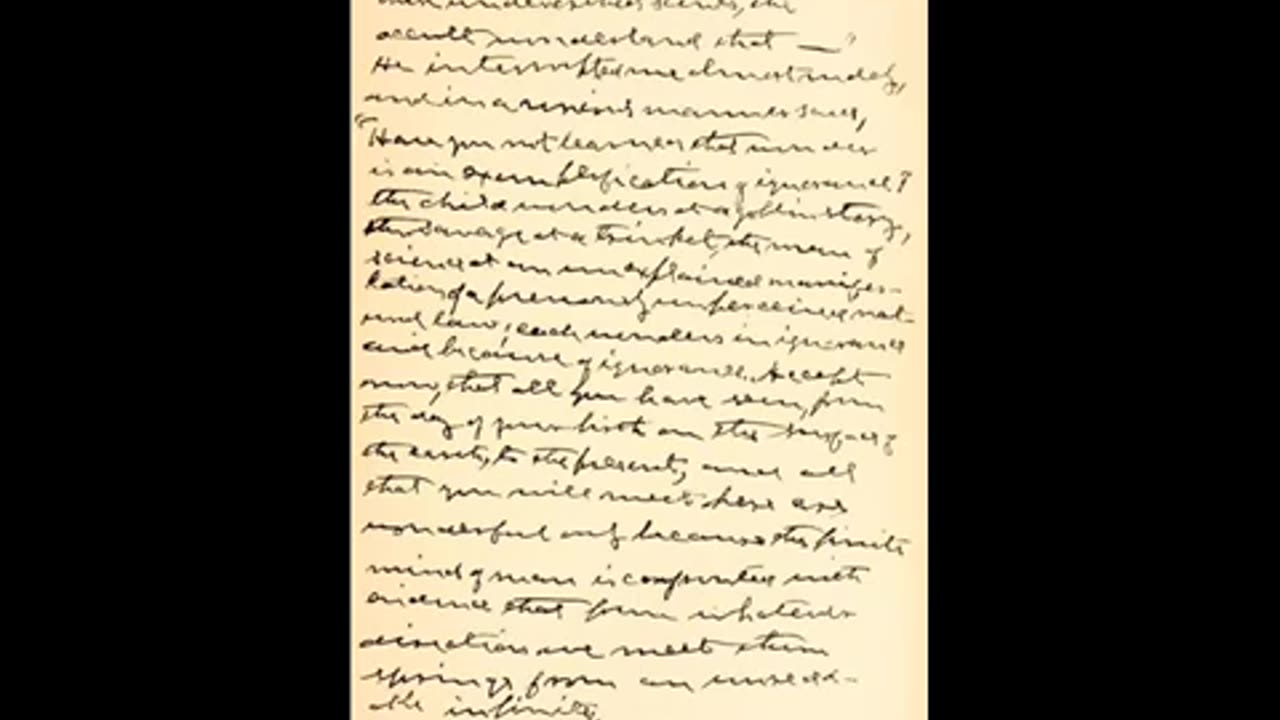 understand that —"
He interrupted me almost rudely,
and in a serious manner said,
"Have you not learned that wonder
is an exemplification of ignorance?
the child wonders at a goblin story,
the savage at a trinket, the man of
science at an unexplained manifes-
tation of a previously unperceived nat-
ural law; each wonders in ignorance
and because of ignorance. Accept
now, that all you have seen, from
the day of your birth on the surface of
the earth, to the present, and all
that you will meet here are
wonderful only because the finite
mind of man is confronted with
evidence that from whatever
direction we meet them
springs from an unread-
the infinite